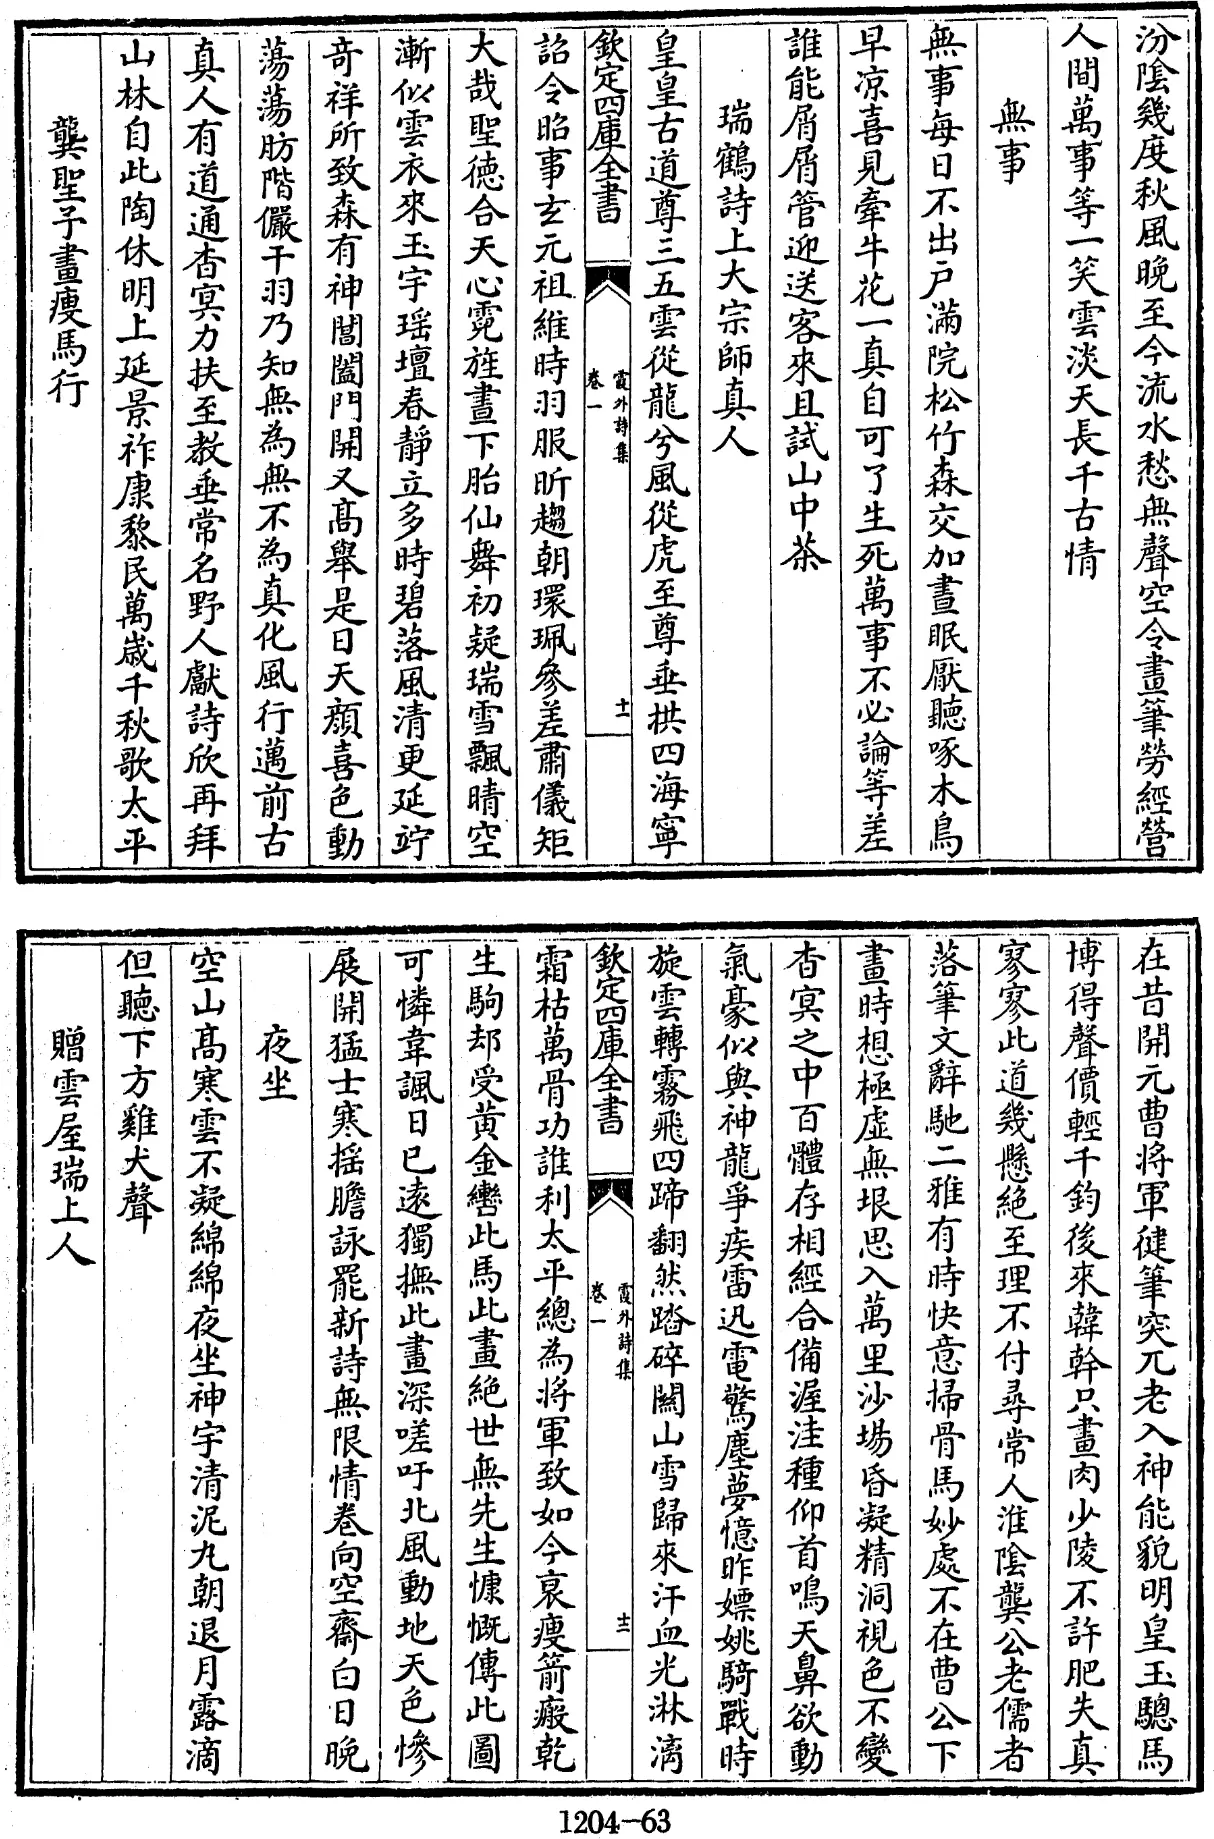 汾陰幾度秋風晚至今流水愁無聲空令畫筆勞經營
人間萬事等一笑雲淡天長千古情
無事
無事每日不出戸滿院松竹森交加晝眠厭聽啄木鳥
早凉喜見牽牛花一真自可了生死萬事不必論等差
誰能屑屑管迎送客來且試山中茶
瑞鶴詩上大宗師真人
皇皇古道尊三五雲從龍兮風從虎至尊垂拱四海寧
欽定四庫全書
霞外詩集
卷一
十一
詔令昭事玄元祖維時羽服昕趨朝環珮參差肅儀矩
大哉聖德合天心霓旌晝下胎仙舞初疑瑞雪飄晴空
漸似雲衣來玉宇瑶壇春靜立多時碧落風清更延竚
奇祥所致森有神閶闔門開又髙舉是日天顔喜色動
蕩蕩肪階儼干羽乃知無為無不為真化風行邁前古
真人有道通杳冥力扶至教垂常名野人獻詩欣再拜
山林自此陶休明上延景祚康黎民萬歲千秋歌太平
龔聖予畫瘦馬行
在昔開元曹將軍健筆突兀老入神能貌明皇玉驄馬
博得聲價輕千鈞後來韓幹只畫肉少陵不許肥失真
寥寥此道幾懸絶至理不付尋常人淮陰龔公老儒者
落筆文辭馳二雅有時快意掃骨馬妙處不在曹公下
畫時想極虛無垠思入萬里沙場昏凝精洞視色不變
杳冥之中百體存相經合備渥洼種仰首鳴天鼻欲動
氣豪似與神龍爭疾雷迅電驚塵夢憶昨嫖姚騎戰時
旋雲轉霧飛四蹄翻然踏碎關山雪歸來汗血光淋漓
欽定四庫全書
霞外詩集
卷一
十二
霜枯萬骨功誰利太平總為將軍致如今衰瘦箭瘢乾
生駒却受黄金轡此馬此畫絶世無先生慷慨傳此圖
可憐韋諷日已逺獨撫此畫深嗟吁北風動地天色慘
展開猛士寒揺膽詠罷新詩無限情卷向空齋白日晚
夜坐
空山髙寒雲不凝綿綿夜坐神宇清泥丸朝退月露滴
但聽下方雞犬聲
贈雲屋瑞上人
1204-63